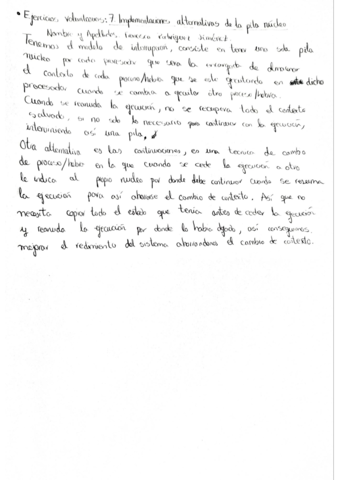 • Ejercicios voluntarios: 7 Implementaciones alternativas de la pila núcleo
Nombre y Apellidos: Rodríguez Jiménez
Tenemos el modelo de interrupción, consiste en tener una sola pila
núcleo por cada procesador que sera la encargada de almacenar
el contexto de cada proceso/hebra que se este ejecutando en dicho
procesador cuando se cambia a ejecutar otro proceso/hebra.
Cuando se reanuda la ejecución, no se recupera todo el contexto
salvado, si no solo lo necesario para continuar con la ejecución,
así una pila.
Otra alternativa es las continuaciones, es una tecnica de cambio
de proceso/hebra en lo que cuando se cede la ejecución a otro
le indica al propio nucleo por donde debe continuar cuando se reanuda
la ejecución para así ahorrarse el cambio de contexto. Así que no
necesita copiar todo el estado que tenia antes de ceder la ejecución
y reanuda la ejecución por donde lo habia dejado, así conseguimos
mejorar el rendimiento del sistema ahorrandonos el cambio de contexto.